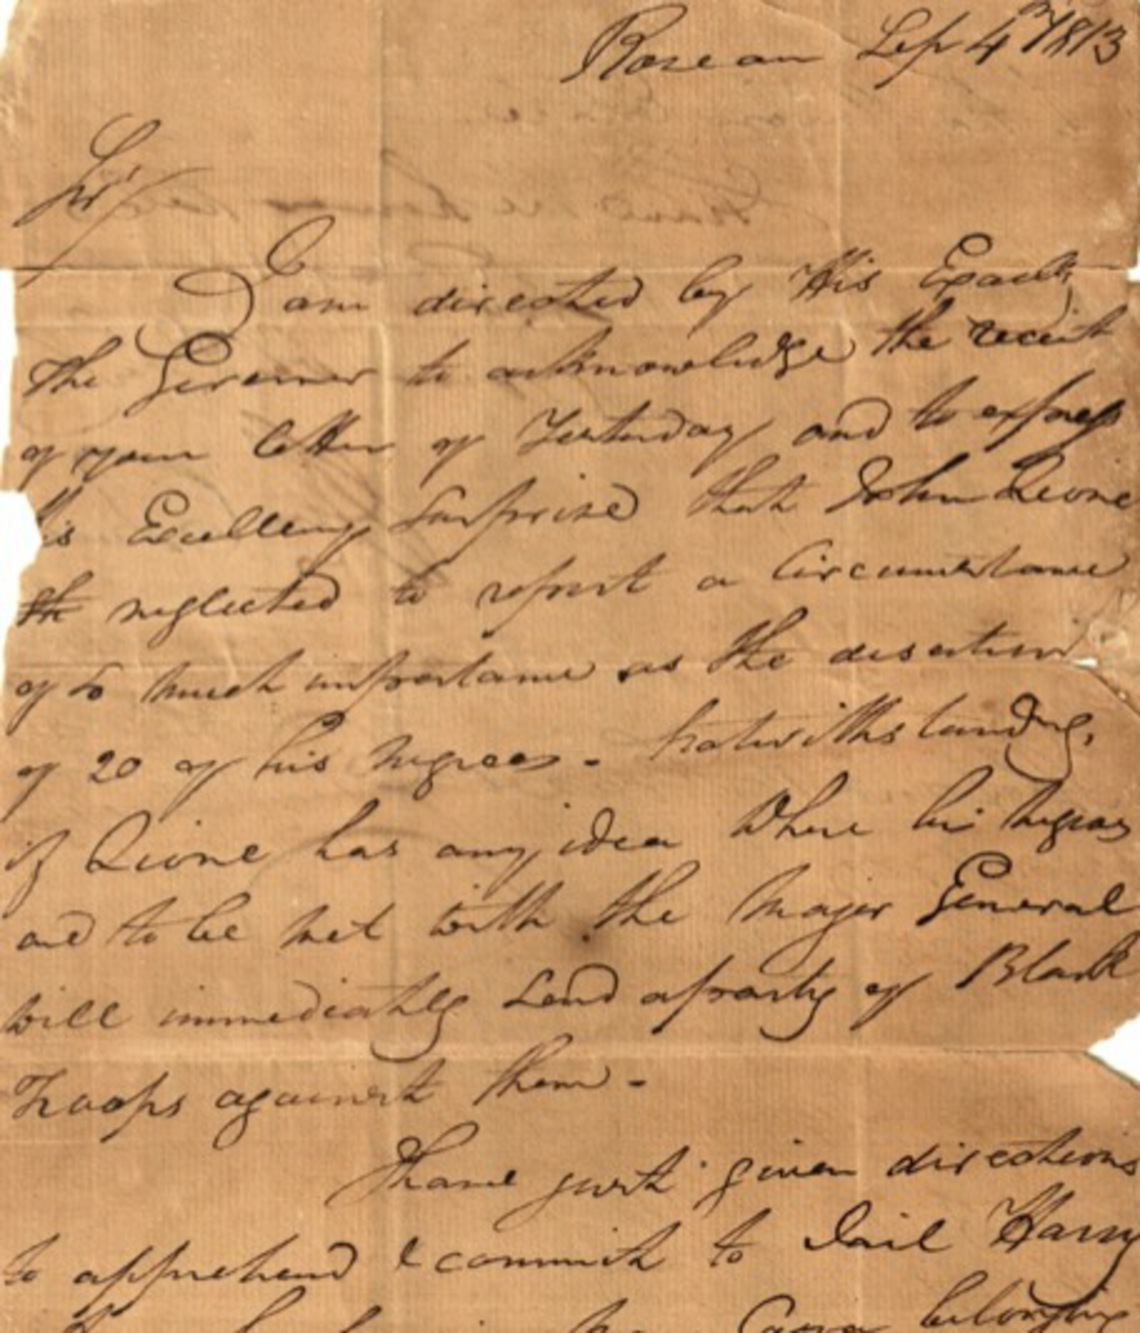 Roseau Sep 4th 1813
Sir/
I am directed by His Excell:
The Governor to acknowledge the receit
of your letter of Yesterday and to express
his Excellency Surprise that John
neglected to report a Circumstance
of So much importance as the desertion
of 20 of his Negroes - Notwithstanding,
if has any idea Where his Negroes
are to be Met With the Major General
Will immediately Send a party of Black
Troops against them -
I have just given directions
to apprehend & commit to Jail Harry
belonging